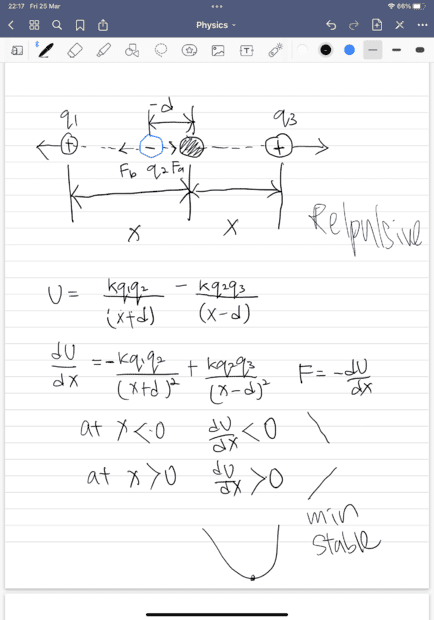 22:17 Fri 25 Mar
86%
Physics
-d
q1 q3
+ - +
Fb q2 Fa
x x
Relpulsive
U = kq1q2/(x+d) - kq2q3/(x-d)
dU/dx = -kq1q2/(x+d)² + kq2q3/(x-d)² F = -dU/dx
at x<0 dU/dx <0 \
at x>0 dU/dx >0 /
min
stable